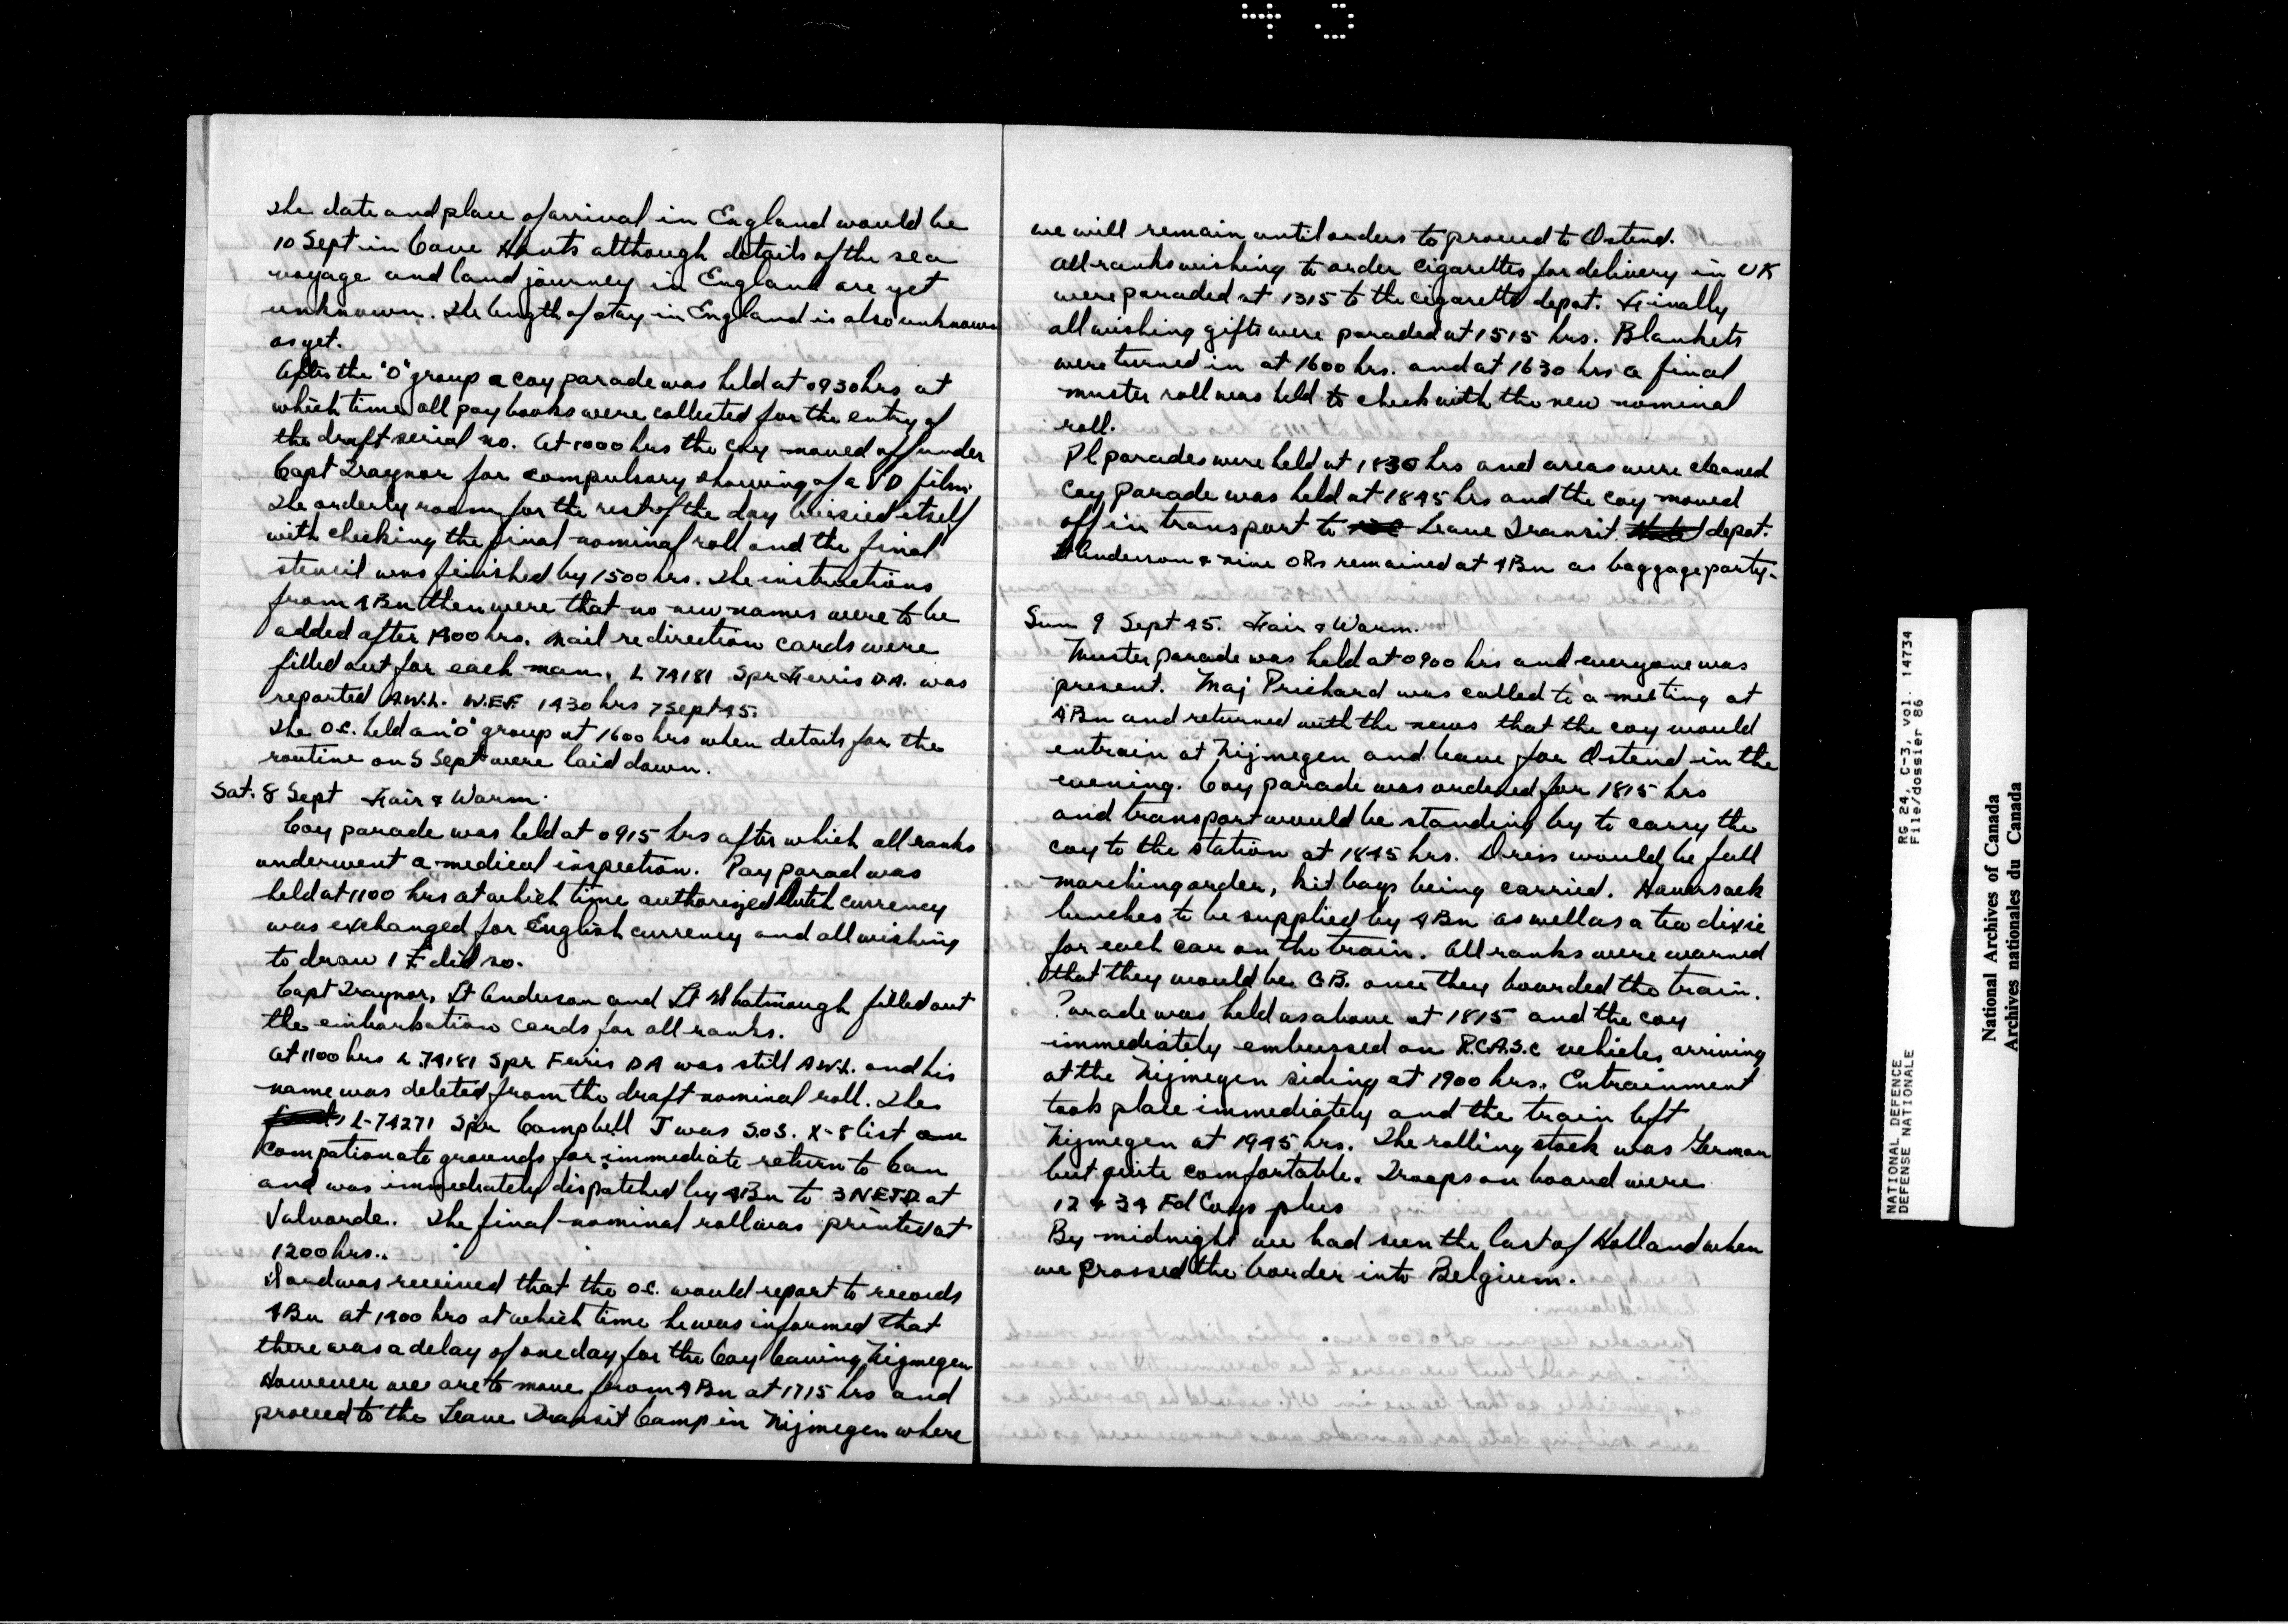 The date and place of arrival in England would be
10 Sept in Cove Hants although details of the sea
voyage and land journey in England are yet
unknown. The length of stay in England is also unknown
as yet.
After the "O" group a coy parade was held at 0930 hrs at
which time all pay books were collected for the entry of
the draft serial no. At 1000 hrs the coy moved off under
Capt Traynor for compulsory showing of a VD film.
The orderly room for the rest of the day busied itself
with checking the final nominal roll and the final
stencil was finished by 1500 hrs. The instructions
from 4 Bn then were that no new names were to be
added after 1400 hrs. Mail redirection cards were
filled out for each man. L 74181 Spr Ferris D.A. was
reported A.W.L. W.E.F. 1430 hrs 7 Sept 45.
The O.C. held an "O" group at 1600 hrs when details for the
routine on Sept were laid down.
Sat. 8 Sept Fair & Warm.
Coy parade was held at 0915 hrs after which all ranks
underwent a medical inspection. Pay parad was
held at 1100 hrs at which time authorized Dutch currency
was exchanged for English currency and all wishing
to draw 1 £ did so.
Capt Traynor, Lt Anderson and Lt Whatmough filled out
the embarkation cards for all ranks.
At 1100 hrs L 74181 Spr Ferris DA was still A.W.L. and his
name was deleted from the draft nominal roll. The
L-74271 Spr Campbell J was S.O.S. X-8 list one
compationate grounds for immediate return to Can
and was immediately dispatched by 4 Bn to 3 NETD at
Valvorde. The final nominal roll was printed at
1200 hrs.
Word was received that the O.C. would report to records
4 Bn at 1400 hrs at which time he was informed that
there was a delay of one day for the Coy leaving Nijmegen
However we are to move from 4 Bn at 1715 hrs and
proceed to the Leave Transit Camp in Nijmegen where
we will remain until orders to proceed to Ostend.
All ranks wishing to order cigarettes for delivery in UK
were paraded at 1315 to the cigarette depot. Finally
all wishing gifts were paraded at 1515 hrs. Blankets
were turned in at 1600 hrs. and at 1630 hrs a final
muster roll was held to check with the new nominal
roll.
Pl parades were held at 1830 hrs and areas were cleaned
Coy parade was held at 1845 hrs and the coy moved
off in transport to Leave Transit depot.
Anderson & nine ORs remained at 4 Bn as baggage party.
Sun 9 Sept 45. Fair & Warm.
Muster parade was held at 0900 hrs and everyone was
present. Maj Prichard was called to a meeting at
4 Bn and returned with the news that the coy would
entrain at Nijmegen and leave for Ostend in the
evening. Coy parade was ordered for 1815 hrs
and transport would be standing by to carry the
coy to the station at 1845 hrs. Dress would be full
marching order, kit bags being carried. Haversack
lunches to be supplied by 4 Bn as well as a tea dixie
for each car on the train. All ranks were warned
that they would be C.B. once they boarded the train.
Parade was held as above at 1815 and the coy
immediately embussed on R.C.A.S.C vehicles arriving
at the Nijmegen siding at 1900 hrs. Entrainment
took place immediately and the train left
Nijmegen at 1945 hrs. The rolling stock was German
but quite comfortable. Troops on board were
12 & 34 Fd Coys plus
By midnight we had seen the last of Holland when
we crossed the border into Belgium.
NATIONAL DEFENCE RG 24, C-3, vol. 14734
DEFENSE NATIONALE File/dossier 86
National Archives of Canada
Archives nationales du Canada